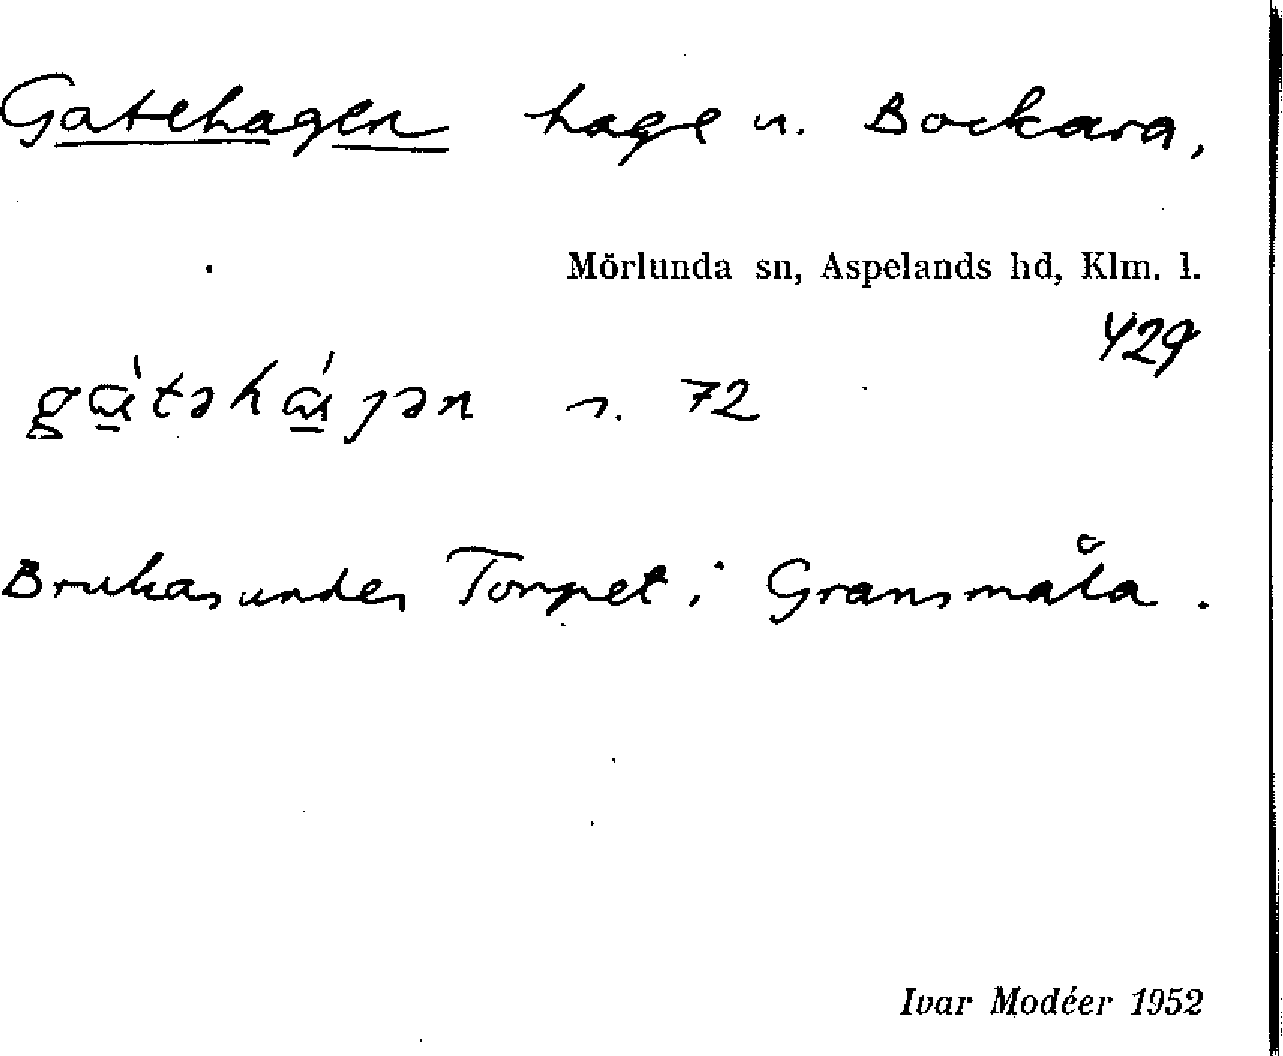 Gatehagen hage u. Bockara,
Mörlunda sn, Aspelands hd, Klm. l.
429
gὰ̲təhά̲ɡən s. 72
Brukas under Torpet i Gransmåla.
Ivar Modéer 1952